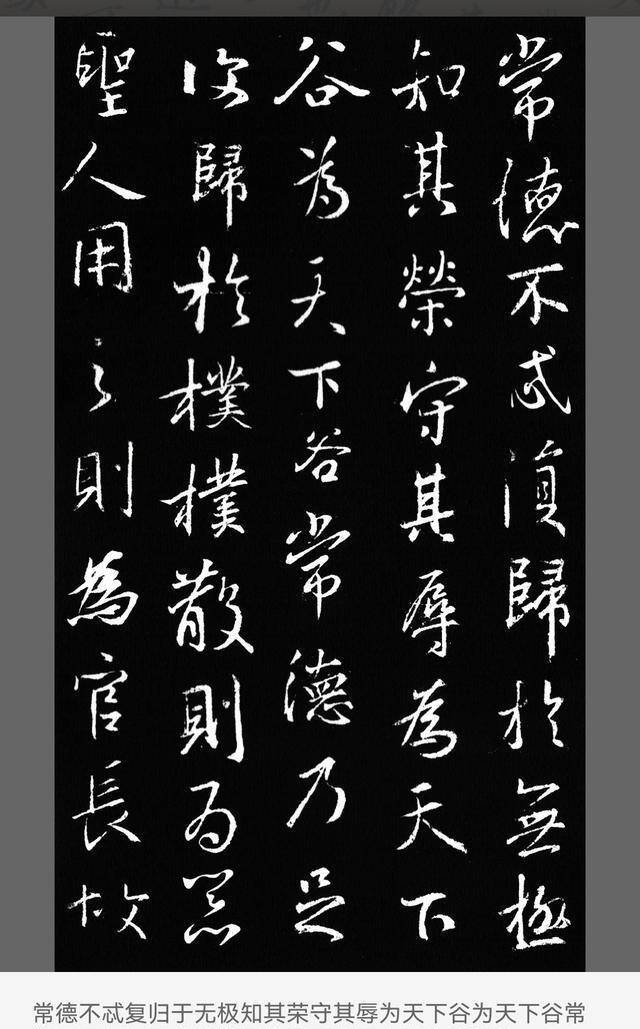 常德不忒復歸於無極
知其榮守其辱為天下
谷為天下谷常德乃足
復歸於樸樸散則為器
聖人用之則為官長故
常德不忒复归于无极知其荣守其辱为天下谷为天下谷常